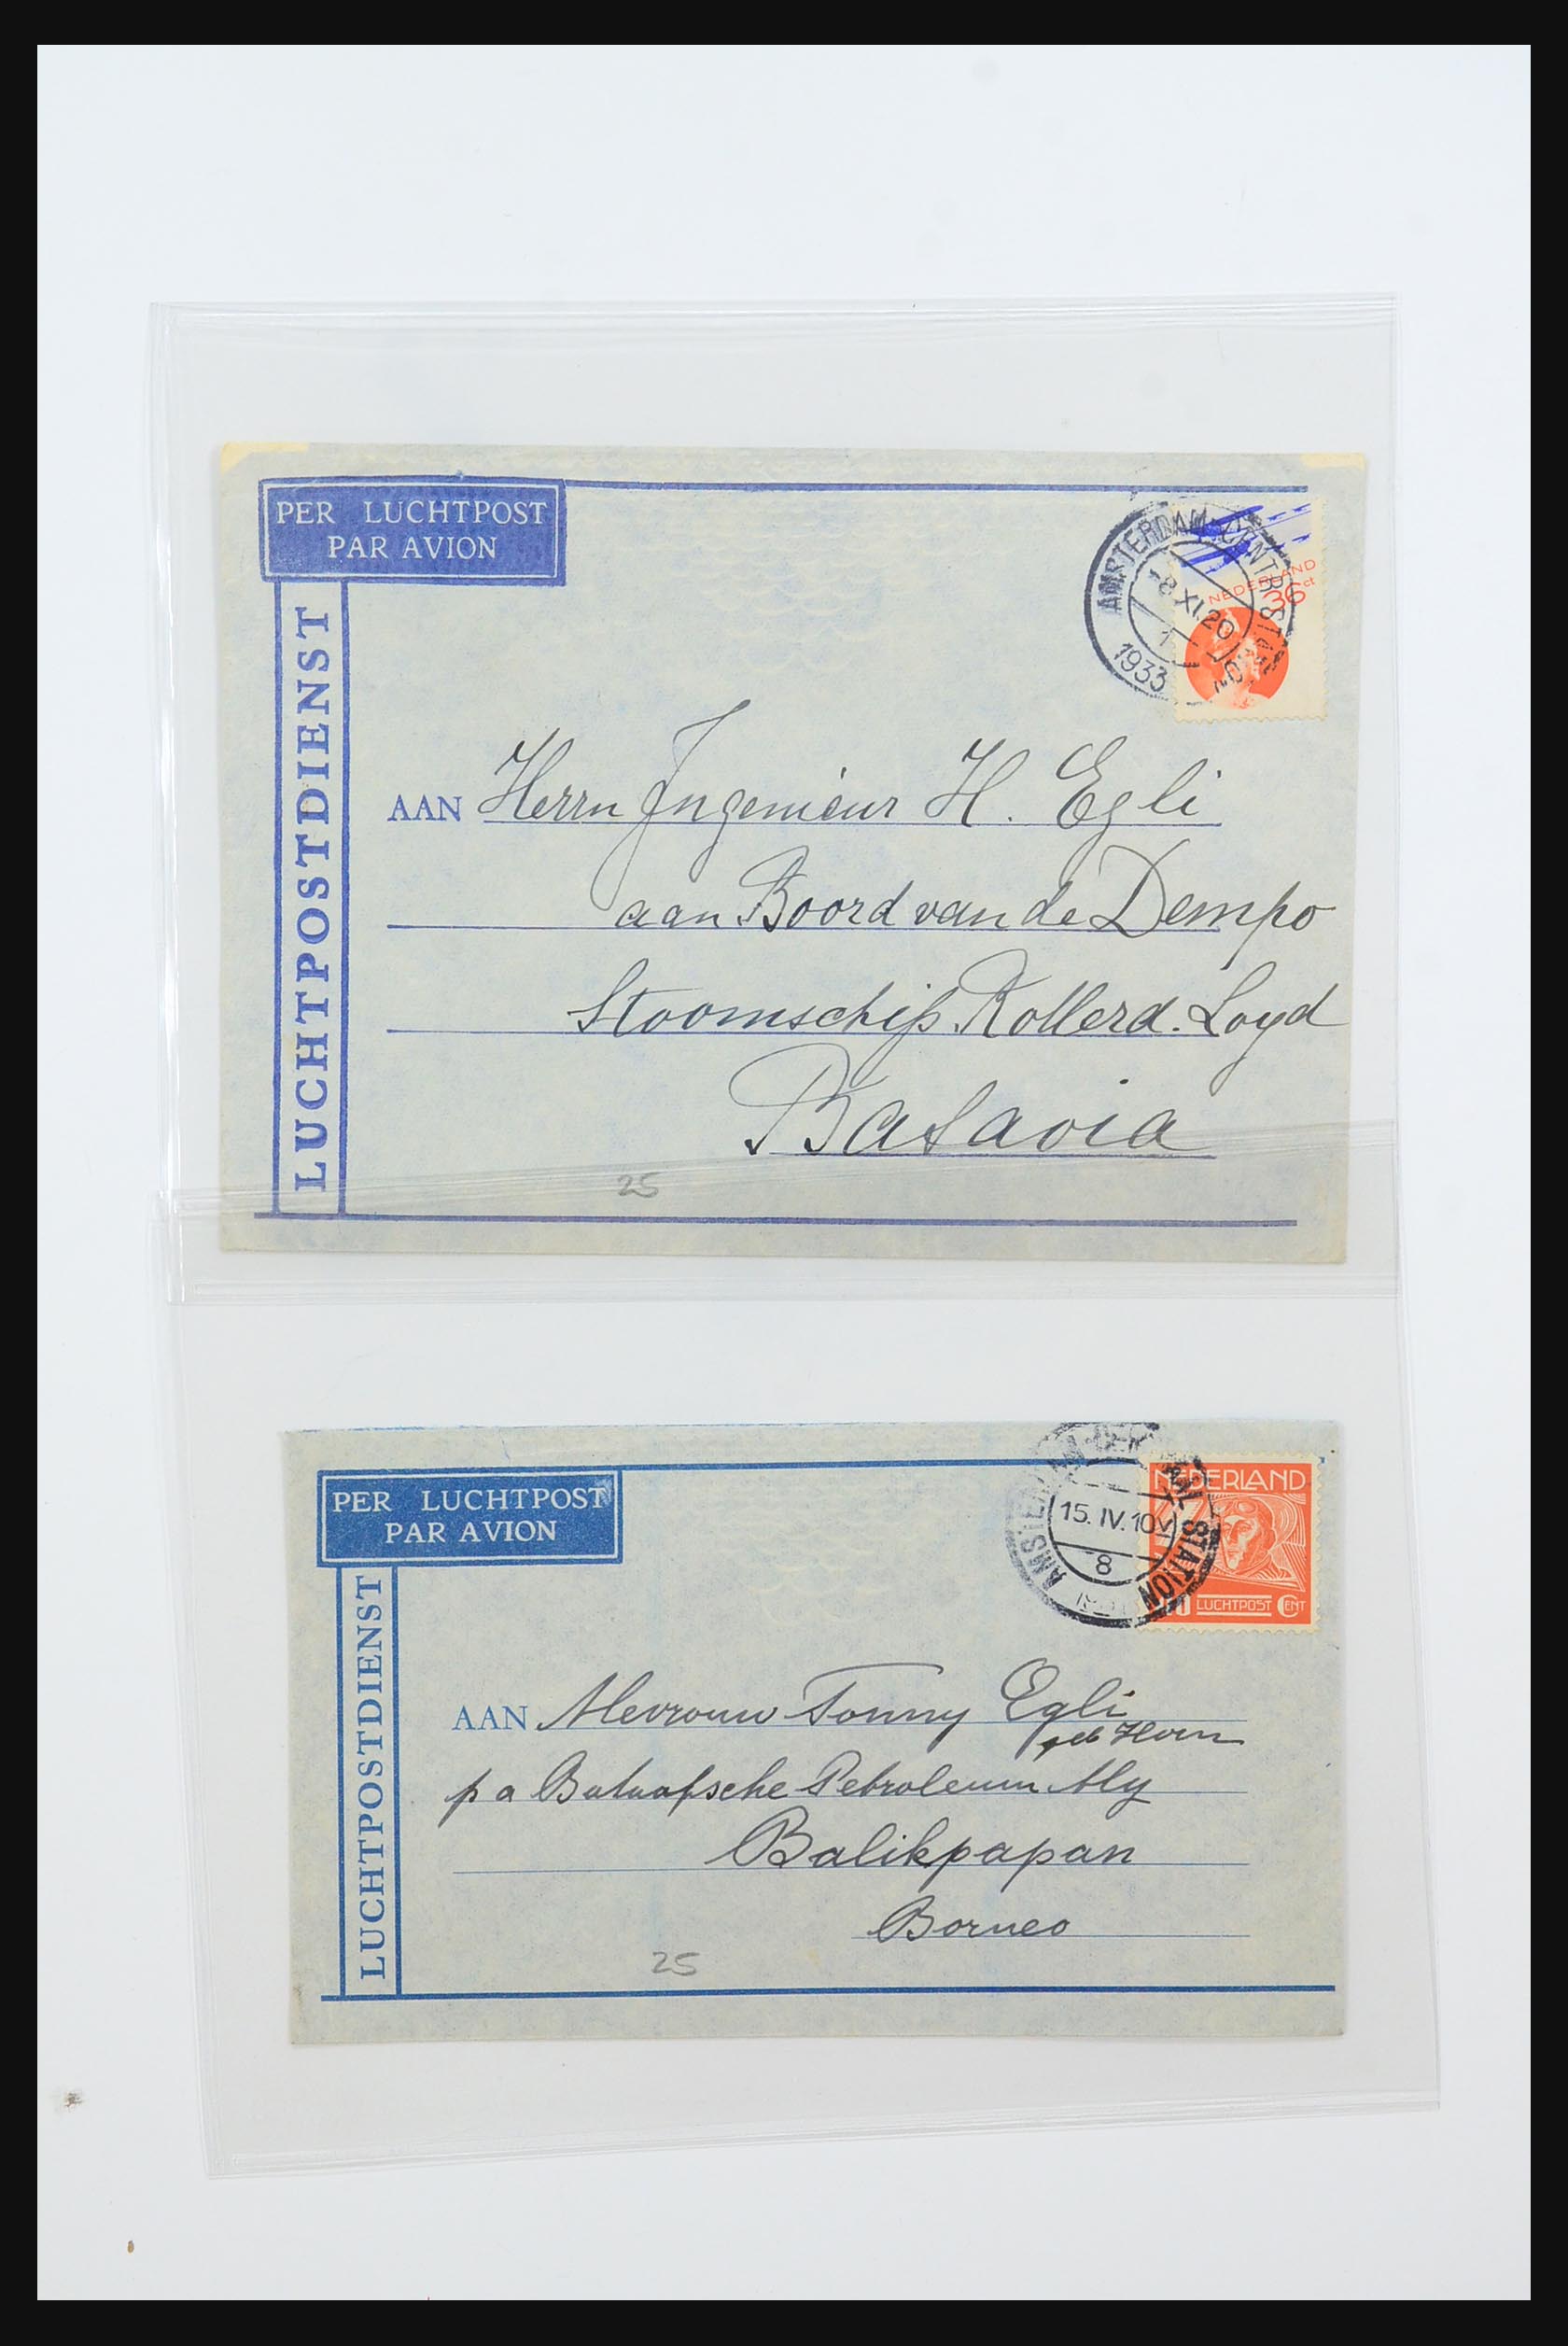 PER LUCHTPOST
PAR AVION
LUCHTPOSTDIENST
AMSTERDAM-CENTR. STATION
8 XI.20
1
1933
NEDERLAND
36 ct
AAN Herrn Ingenieur H. Egli
aan Boord van de Dempo
Stoomschip Rotterd. Loyd
Batavia
25
PER LUCHTPOST
PAR AVION
LUCHTPOSTDIENST
STATION
15. IV. 10V
8
NEDERLAND
LUCHTPOST CENT
AAN Mevrouw Tonny Egli
geb Horn
p a Bataafsche Petroleum My
Balikpapan
Borneo
25